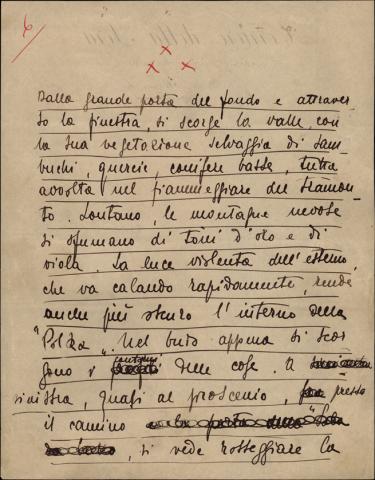 Dalla grande porta del fondo e attraver
so la finestra, si scorge la valle, con
la sua vegetazione selvaggia di sam
buchi, quercie, conifere basse, tutta
avvolta nel fiammeggiare del tramon
to. Lontano, le montagne nevose
si sfumano di toni d'oro e di
viola. La luce violenta dell'esterno,
che va calando rapidamente, rende
anche più oscuro l'interno della
"Polka". Nel buio appena si scor
gono i contorni delle cose. A
sinistra, quasi al proscenio, presso
il camino
si vede rosseggiare la